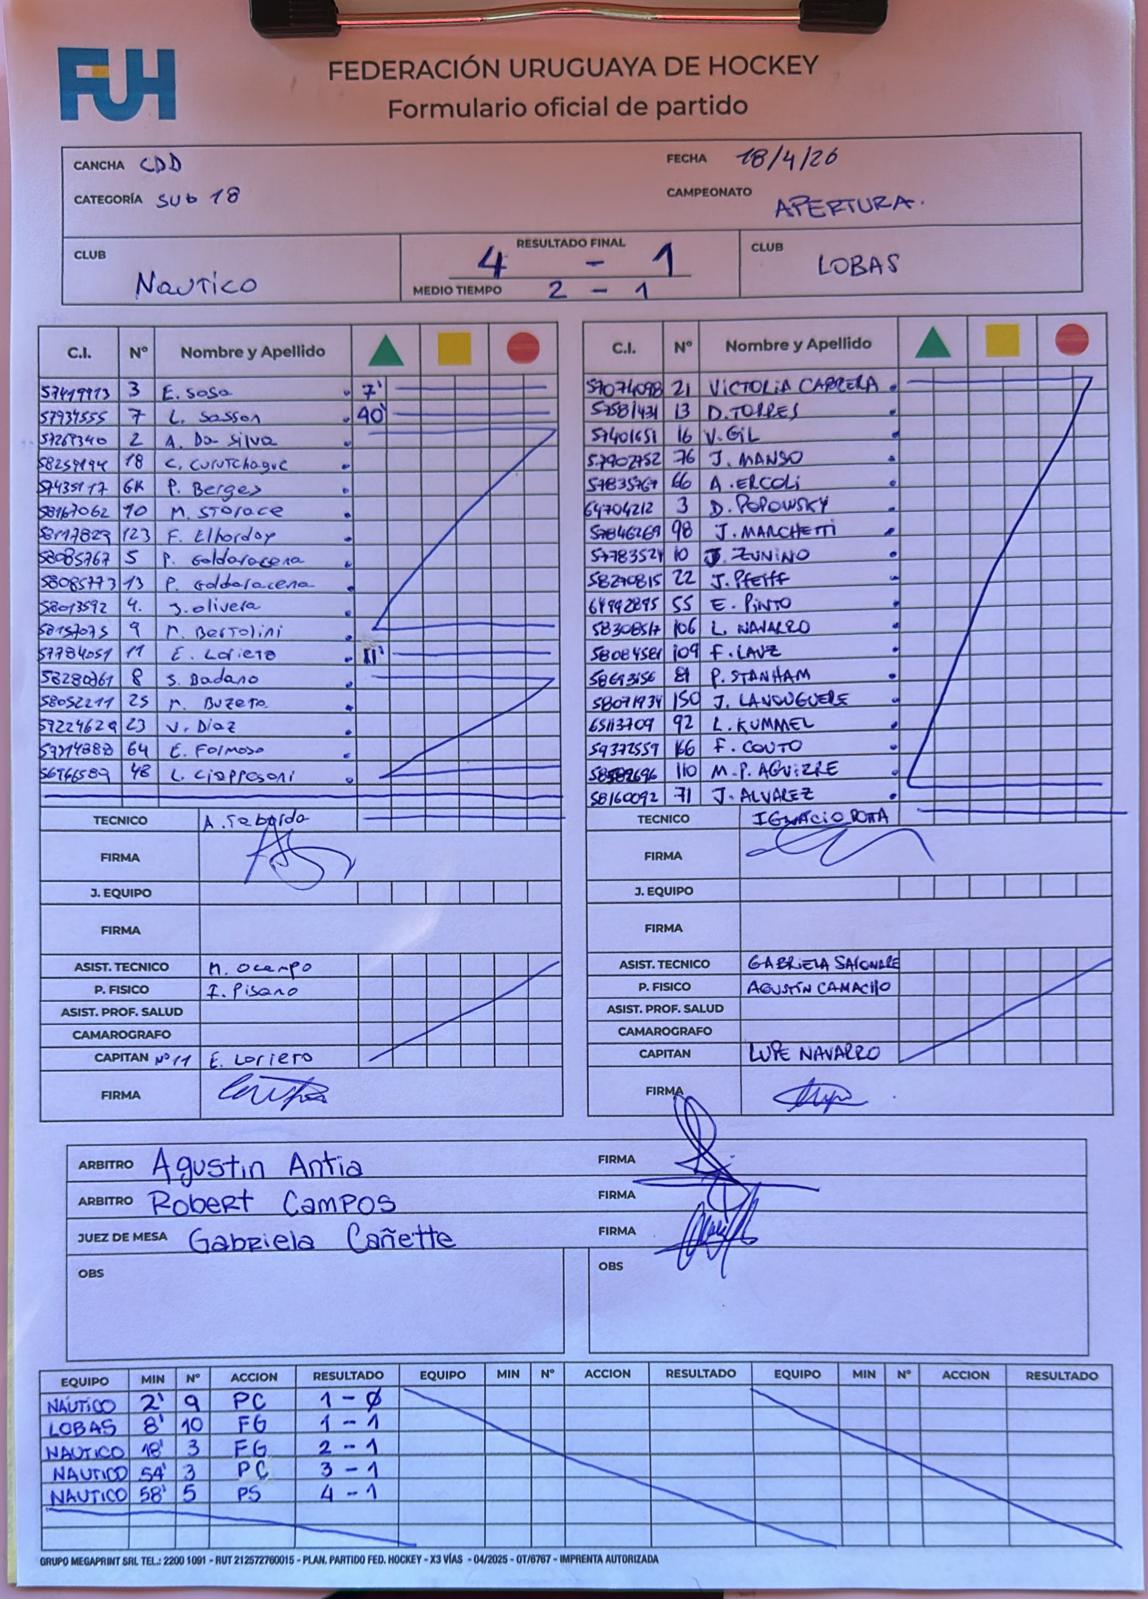 FUH
FEDERACIÓN URUGUAYA DE HOCKEY
Formulario oficial de partido
CANCHA CDD FECHA 18/4/26
CATEGORÍA SUB 18 CAMPEONATO APERTURA.
CLUB Nautico RESULTADO FINAL 4 - 1 CLUB LOBAS
MEDIO TIEMPO 2 - 1
C.I. Nº Nombre y Apellido
3 E. Sosa 7'
7 L. Sasson 40'
2 A. Da Silva
18 C. Curutchague
GK P. Berges
58167062 10 M. Storace
123 F. Elhordoy
58085767 5 P. Goldaracena
58085773 13 P. Goldaracena
58013592 4. J. Olivera
9 M. Bertolini
57784051 11 E. Loriero 11'
58280761 8 S. Badano
58052211 25 M. Buzeta
57224629 23 V. Diaz
64 E. Formoso
56766589 48 L. Ciapposoni
TECNICO A. Taborda
FIRMA
J. EQUIPO
FIRMA
ASIST. TECNICO M. Ocampo
P. FISICO I. Pisano
ASIST. PROF. SALUD
CAMAROGRAFO
CAPITAN Nº 11 E. Loriero
FIRMA
C.I. Nº Nombre y Apellido
57074098 21 VICTORIA CABRERA
13 D. TORRES
57401651 16 V. GIL
57902752 76 J. MANSO
57835767 66 A. ERCOLI
64704212 3 D. POPOWSKY
57846269 98 J. MARCHETTI
57783524 10 J. ZUNINO
58270815 22 J. PFEIFF
64992895 55 E. PINTO
58308517 106 L. NAVARRO
58084581 109 F. LAUZ
81 P. STANHAM
58071934 150 J. LANOUGUERE
65113709 92 L. KUMMEL
59372559 166 F. COUTO
110 M.P. AGUIRRE
58160092 71 J. ALVAREZ
TECNICO IGNACIO ROTTA
FIRMA
J. EQUIPO
FIRMA
ASIST. TECNICO GABRIELA
P. FISICO AGUSTÍN CAMACHO
ASIST. PROF. SALUD
CAMAROGRAFO
CAPITAN LUPE NAVARRO
FIRMA
ARBITRO Agustin Antia FIRMA
ARBITRO Robert Campos FIRMA
JUEZ DE MESA Gabriela Cañette FIRMA
OBS OBS
EQUIPO MIN Nº ACCION RESULTADO EQUIPO MIN Nº ACCION RESULTADO EQUIPO MIN Nº ACCION RESULTADO
NÁUTICO 2' 9 PC 1 - 0
LOBAS 8' 10 FG 1 - 1
NAUTICO 18' 3 FG 2 - 1
NAUTICO 54' 3 PC 3 - 1
NAUTICO 58' 5 PS 4 - 1
GRUPO MEGAPRINT SRL TEL.: 2200 1091 - RUT 212572760015 - PLAN. PARTIDO FED. HOCKEY - X3 VÍAS - 04/2025 - OT/6767 - IMPRENTA AUTORIZADA